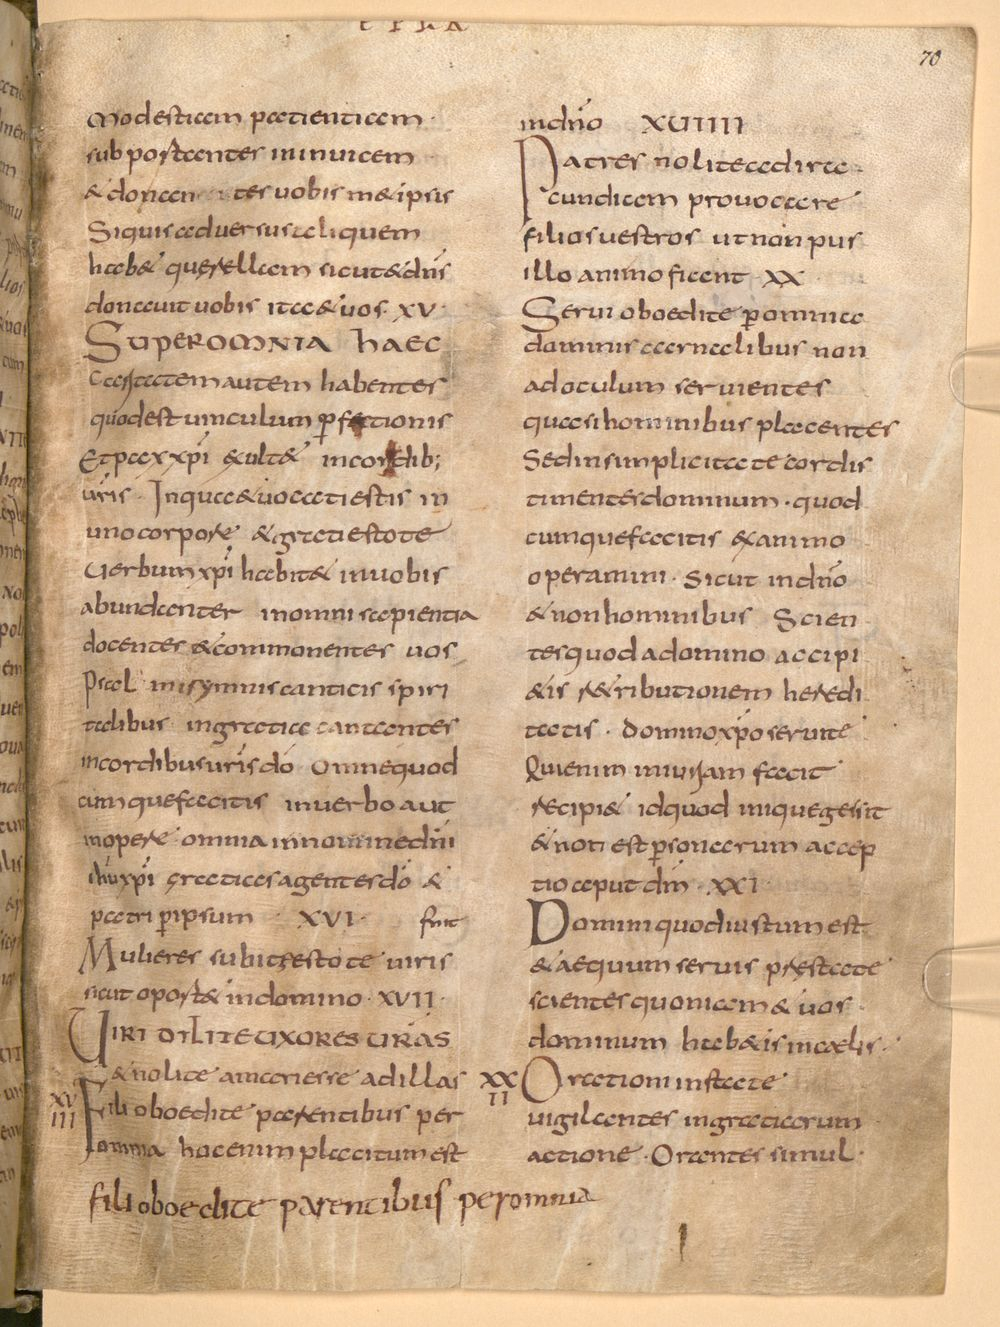 70
modestiam patientiam ·
subportantes inuicem
& donantes uobis m&ipsis
Siquis aduersus aliquem
hab& querellam sicut & dn̄s
donauit uobis ita & uos · XV ·
SUPER OMNIA HAEC
Caritatem autem habentes
quod est uinculum ꝑfectionis
Et pax xp̄i exult& incordib;
ūris · Inqua & uocati estis in
uno corpore & grati estote
Uerbum xp̄i habit& inuobis
abundanter inomni sapientia
docentes & commonentes uos
Psal mis ymnis canticis spiri
talibus ingratia cantantes
incordibus ūris dō Omne quod
cumque facitis inuerbo aut
inopere omnia innomine dn̄i
ih̄u xp̄i gratias agentes dō &
patri ꝑ ipsum · XVI ·
Mulieres subite estote uiris
sicut oport& indomino · XVII ·
UIRI DILITE UXORES UR̄AS
& nolite amari esse ad illas
XV
III
Fili oboedite parentibus per
omnia hoc enim placitum est
fili oboedite parentibus per omnia
indn̄o XVIIII
Patres nolite ad ira
cundiam prouocare
filios uestros ut non pus
illo animo fiant XX ·
Serui oboedite ꝑ omnia
dominis carnalibus non
ad oculum seruientes
quasi hominibus placentes
Sed in simplicitate cordis
timentes dominum · quod
cumque facitis ex animo
operamini · Sicut indn̄o
& non hominibus Scien
tes quod a domino accipi
&is r&ributionem heredi
tatis · domino xp̄o seruite
Qui enim iniuriam facit
recipi& id quod inique gesit
& non est ꝑsonarum accep
tio aput dm̄ · XXI ·
Domini quod iustum est
& aequum seruis prestate
scientes quoniam & uos ·
dominum hab&is incaelis ·
XX
II
Orationi instate
uigilantes ingratiarum
actione · Orantes simul ·